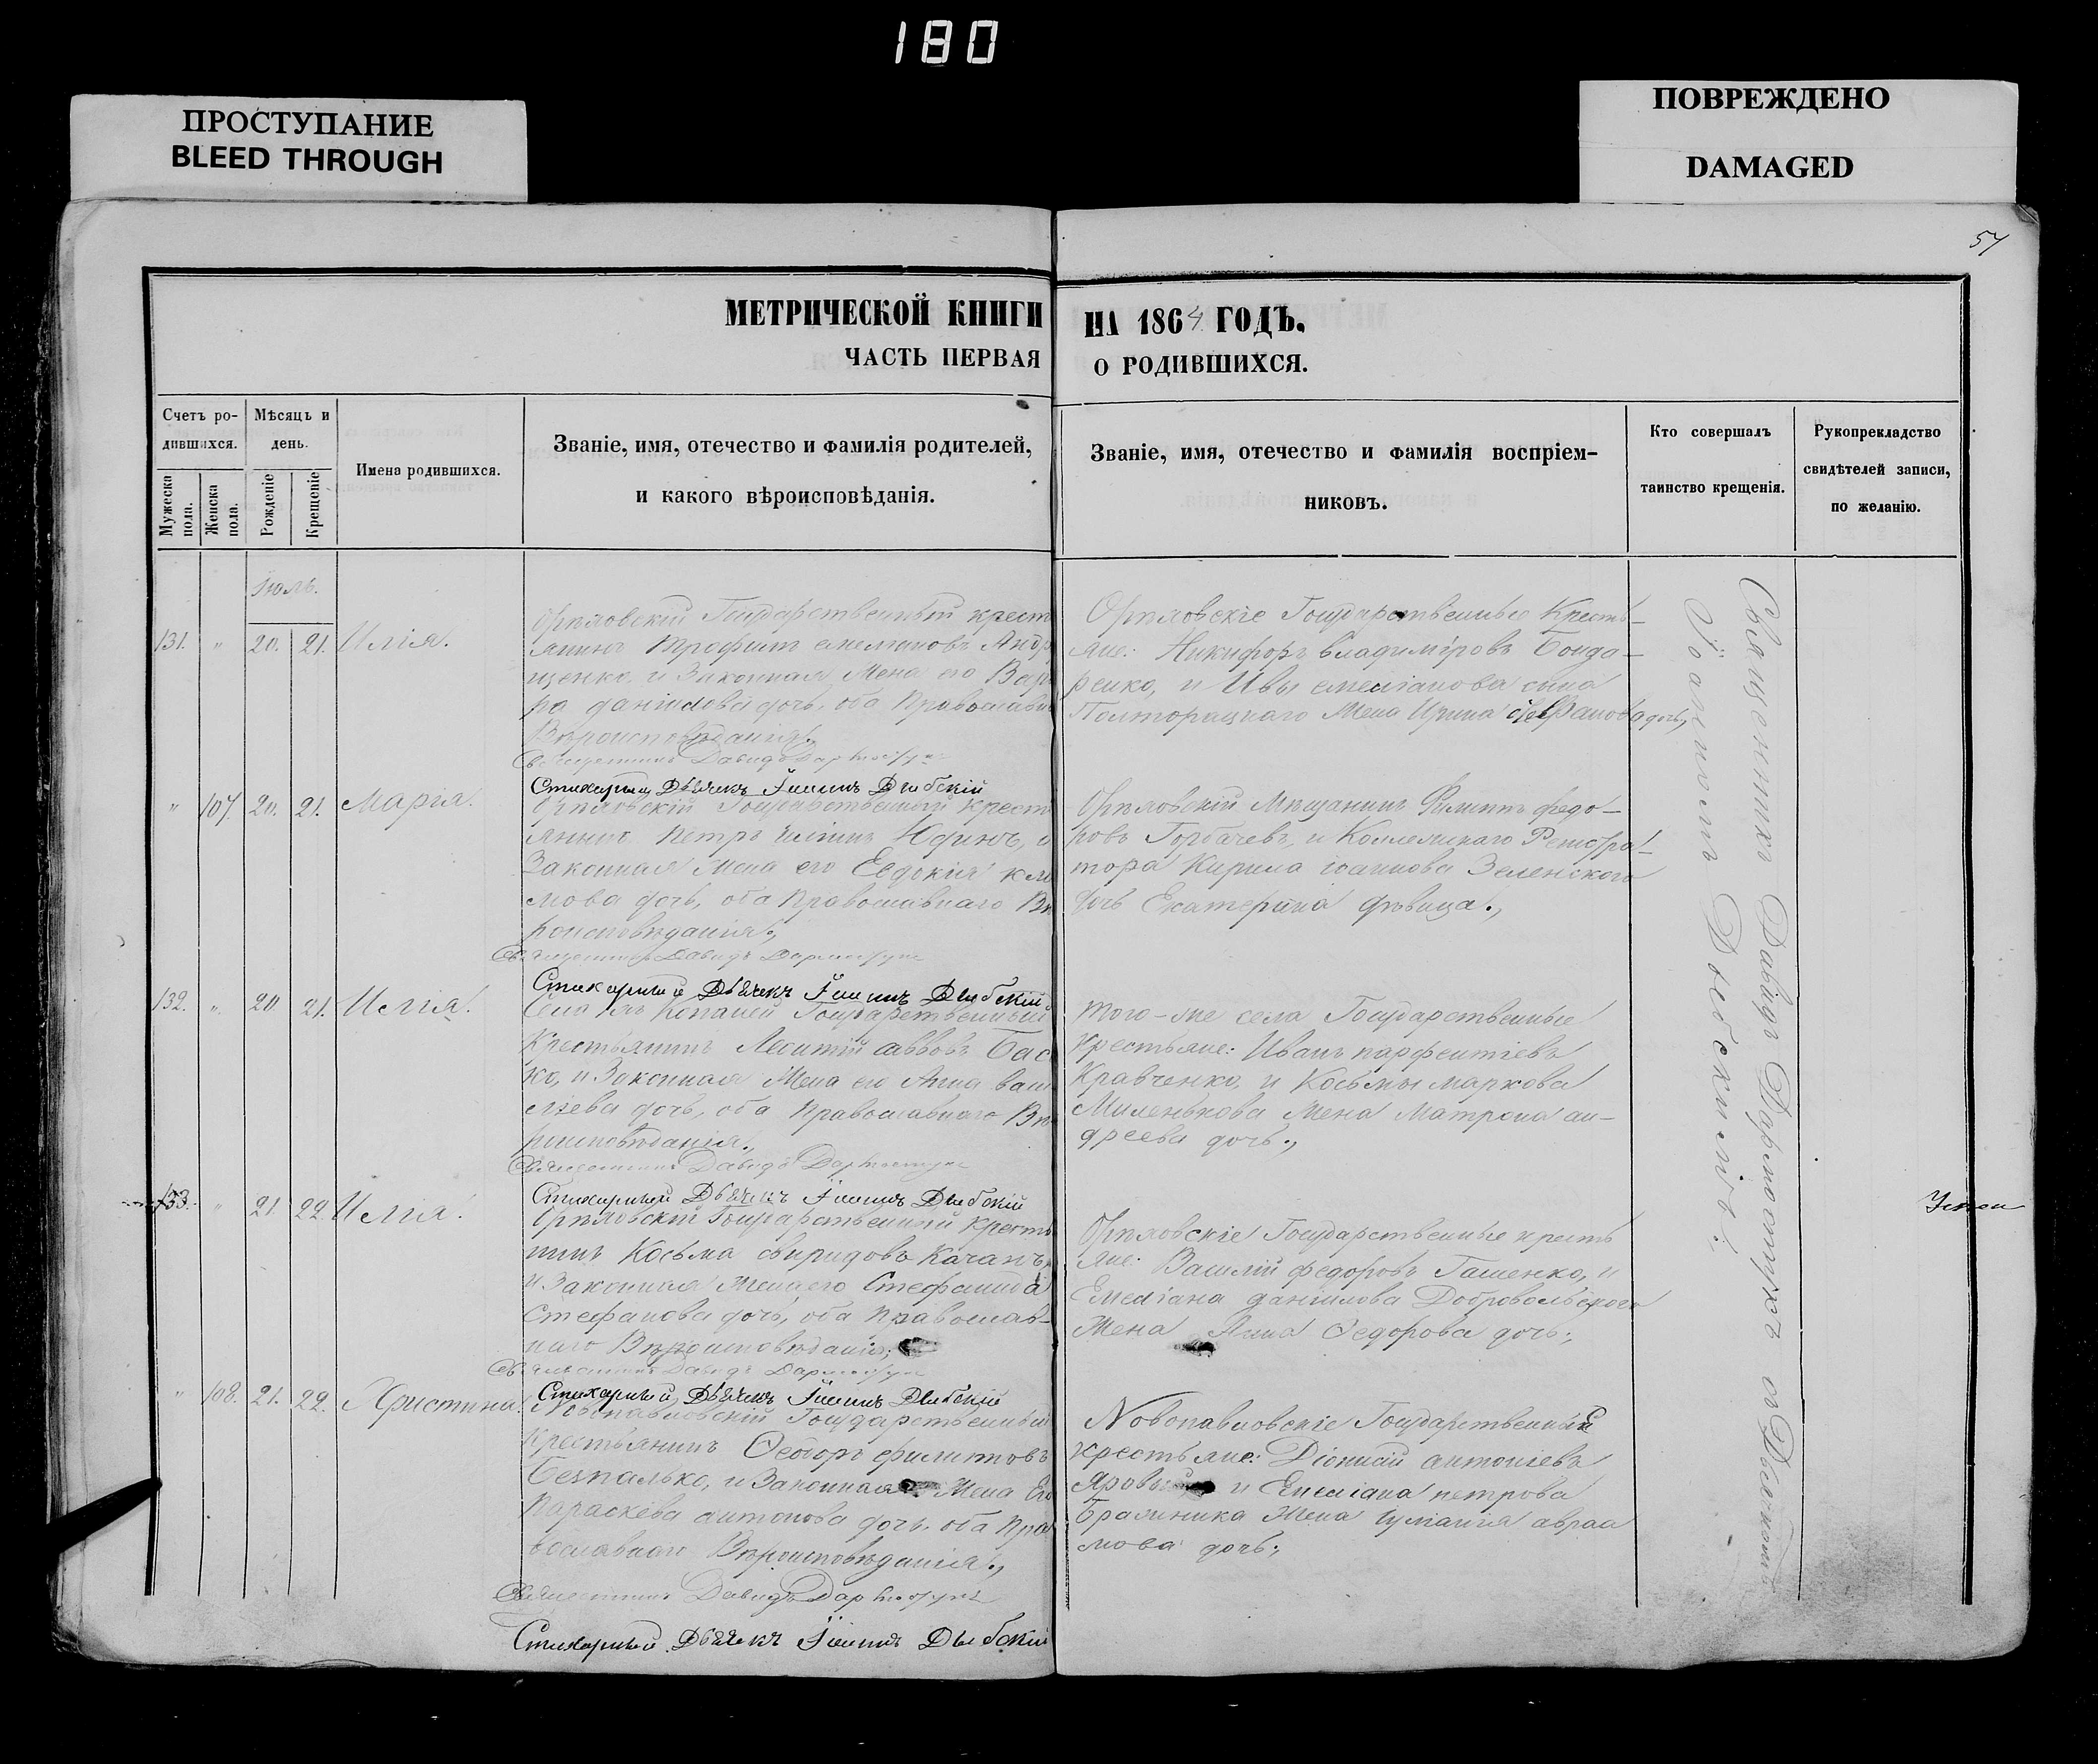 180
ПРОСТУПАНИЕ
BLEED THROUGH
ПОВРЕЖДЕНО
DAMAGED
57
МЕТРИЧЕСКОЙ КНИГИ НА 1864 ГОДЪ.
ЧАСТЬ ПЕРВАЯ О РОДИВШИХСЯ.
Счетъ ро-
дившихся.
Мужеска пола.
Женска пола.
Мѣсяцъ и
день.
Рожденіе
Крещеніе
Имена родившихся.
Званіе, имя, отечество и фамилія родителей,
и какого вѣроисповѣданія.
Званіе, имя, отечество и фамилія воспріем-
никовъ.
Кто совершалъ
таинство крещенія.
Рукоприкладство
свидѣтелей записи,
по желанію.
Іюль.
131. " 20. 21. Илія.
Орѣховскій Государственный крест
янинъ Трофимъ емеліановъ Андр
щенко, и Законная Жена его Варв
ра даніилова дочь, оба Православн
Вѣроисповѣданія.
Священникъ Давидъ
Стихарный Дьячекъ Іоаннъ
Орѣховскіе Государственные Кресть-
яне: Никифоръ владиміровъ Бонда-
ренко, и Ивы емеліанова сына
Полторацкаго Жена Ирина стефанова дочь,
" 107. 20. 21. Марія.
Орѣховскій Государственный крест
янинъ Петръ иліинъ Юдинъ, и
Законная Жена его Евдокія кли
мова дочь, оба Православнаго Вѣ
роисповѣданія.
Священникъ Давидъ
Стихарный Дьячекъ Іоаннъ
Орѣховскій Мѣщанинъ Филиппъ федо-
ровъ Горбачевъ, и Коллежскаго Регистра-
тора Кирила іоаннова Зеленского
дочь Екатерина дѣвица.
132. " 20 21. Илія.
Села Копаней Государственный
Крестьянинъ Леонтій саввовъ Бас
ко, и Законная Жена его Анна васи
ліева дочь, оба Православнаго Вѣ
роисповѣданія.
Священникъ Давидъ
Стихарный Дьячекъ Іоаннъ
того-же села Государственные
крестьяне: Иванъ парфентіевъ
Кравченко, и Косьмы маркова
Миленькова Жена Матрона ан-
дреева дочь.
133. " 21. 22. Илія.
Орѣховскій Государственный кресть
нинъ Косьма свиридовъ Качанъ,
и Законная Жена его Стефанида
Стефанова дочь, оба Православ-
наго Вѣроисповѣданія;
Священникъ Давидъ
Стихарный Дьячекъ Іоаннъ
Орѣховскіе Государственные кресть
яне: Василій федоровъ Гашенко, и
Емеліана даніилова Добровольского
Жена Анна Ѳедорова дочь;
" 108. 21. 22. Христина.
Новопавловскій Государственный
Крестьянинъ Ѳеодоръ филиповъ
Безпалько, и Законная Жена Его
Параскева антонова дочь, оба Пра
вославнаго Вѣроисповѣданія.
Священникъ Давидъ
Стихарный Дьячекъ Іоаннъ
Новопавловскіе Государственные
крестьяне: Діонисій антоніевъ
Яровый и Емеліана петрова
Жена іуліанія авраа
мова дочь;
Священникъ Давидъ
Іоанномъ